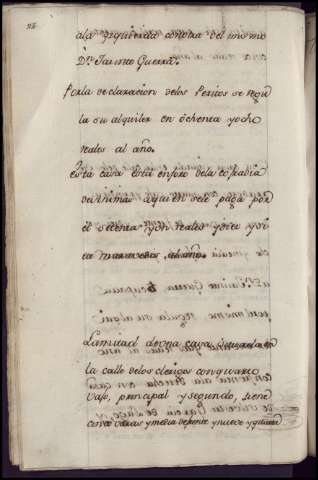 a la izquierda con otra del mismo
Dn. Jacinto Guerra.
Por la declaracion de los Peritos se regu
la su alquiler en ochenta y ocho
reales al año.
Esta casa esta enforo de la cofradia
de Animas aquien se le paga por
el setenta y un reales y
ta maravedis, al año.
La mitad de una casa
la calle de los clerigos con quarto
vajo, principal y segundo, tiene
varas y media de frente y nueve y quarta